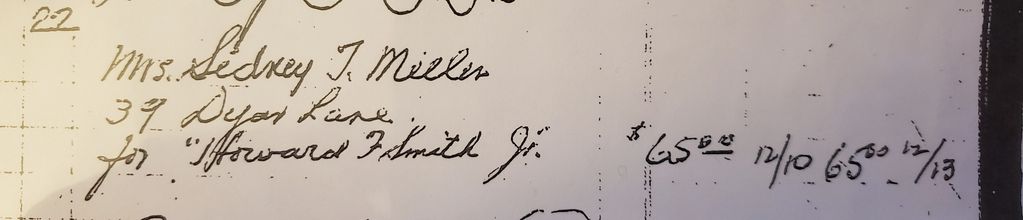 22
Mrs. Sidney T. Miller
39 Dyar Lane.
for "Howard F Smith Jr." $65.00 12/10 65.00 12/13